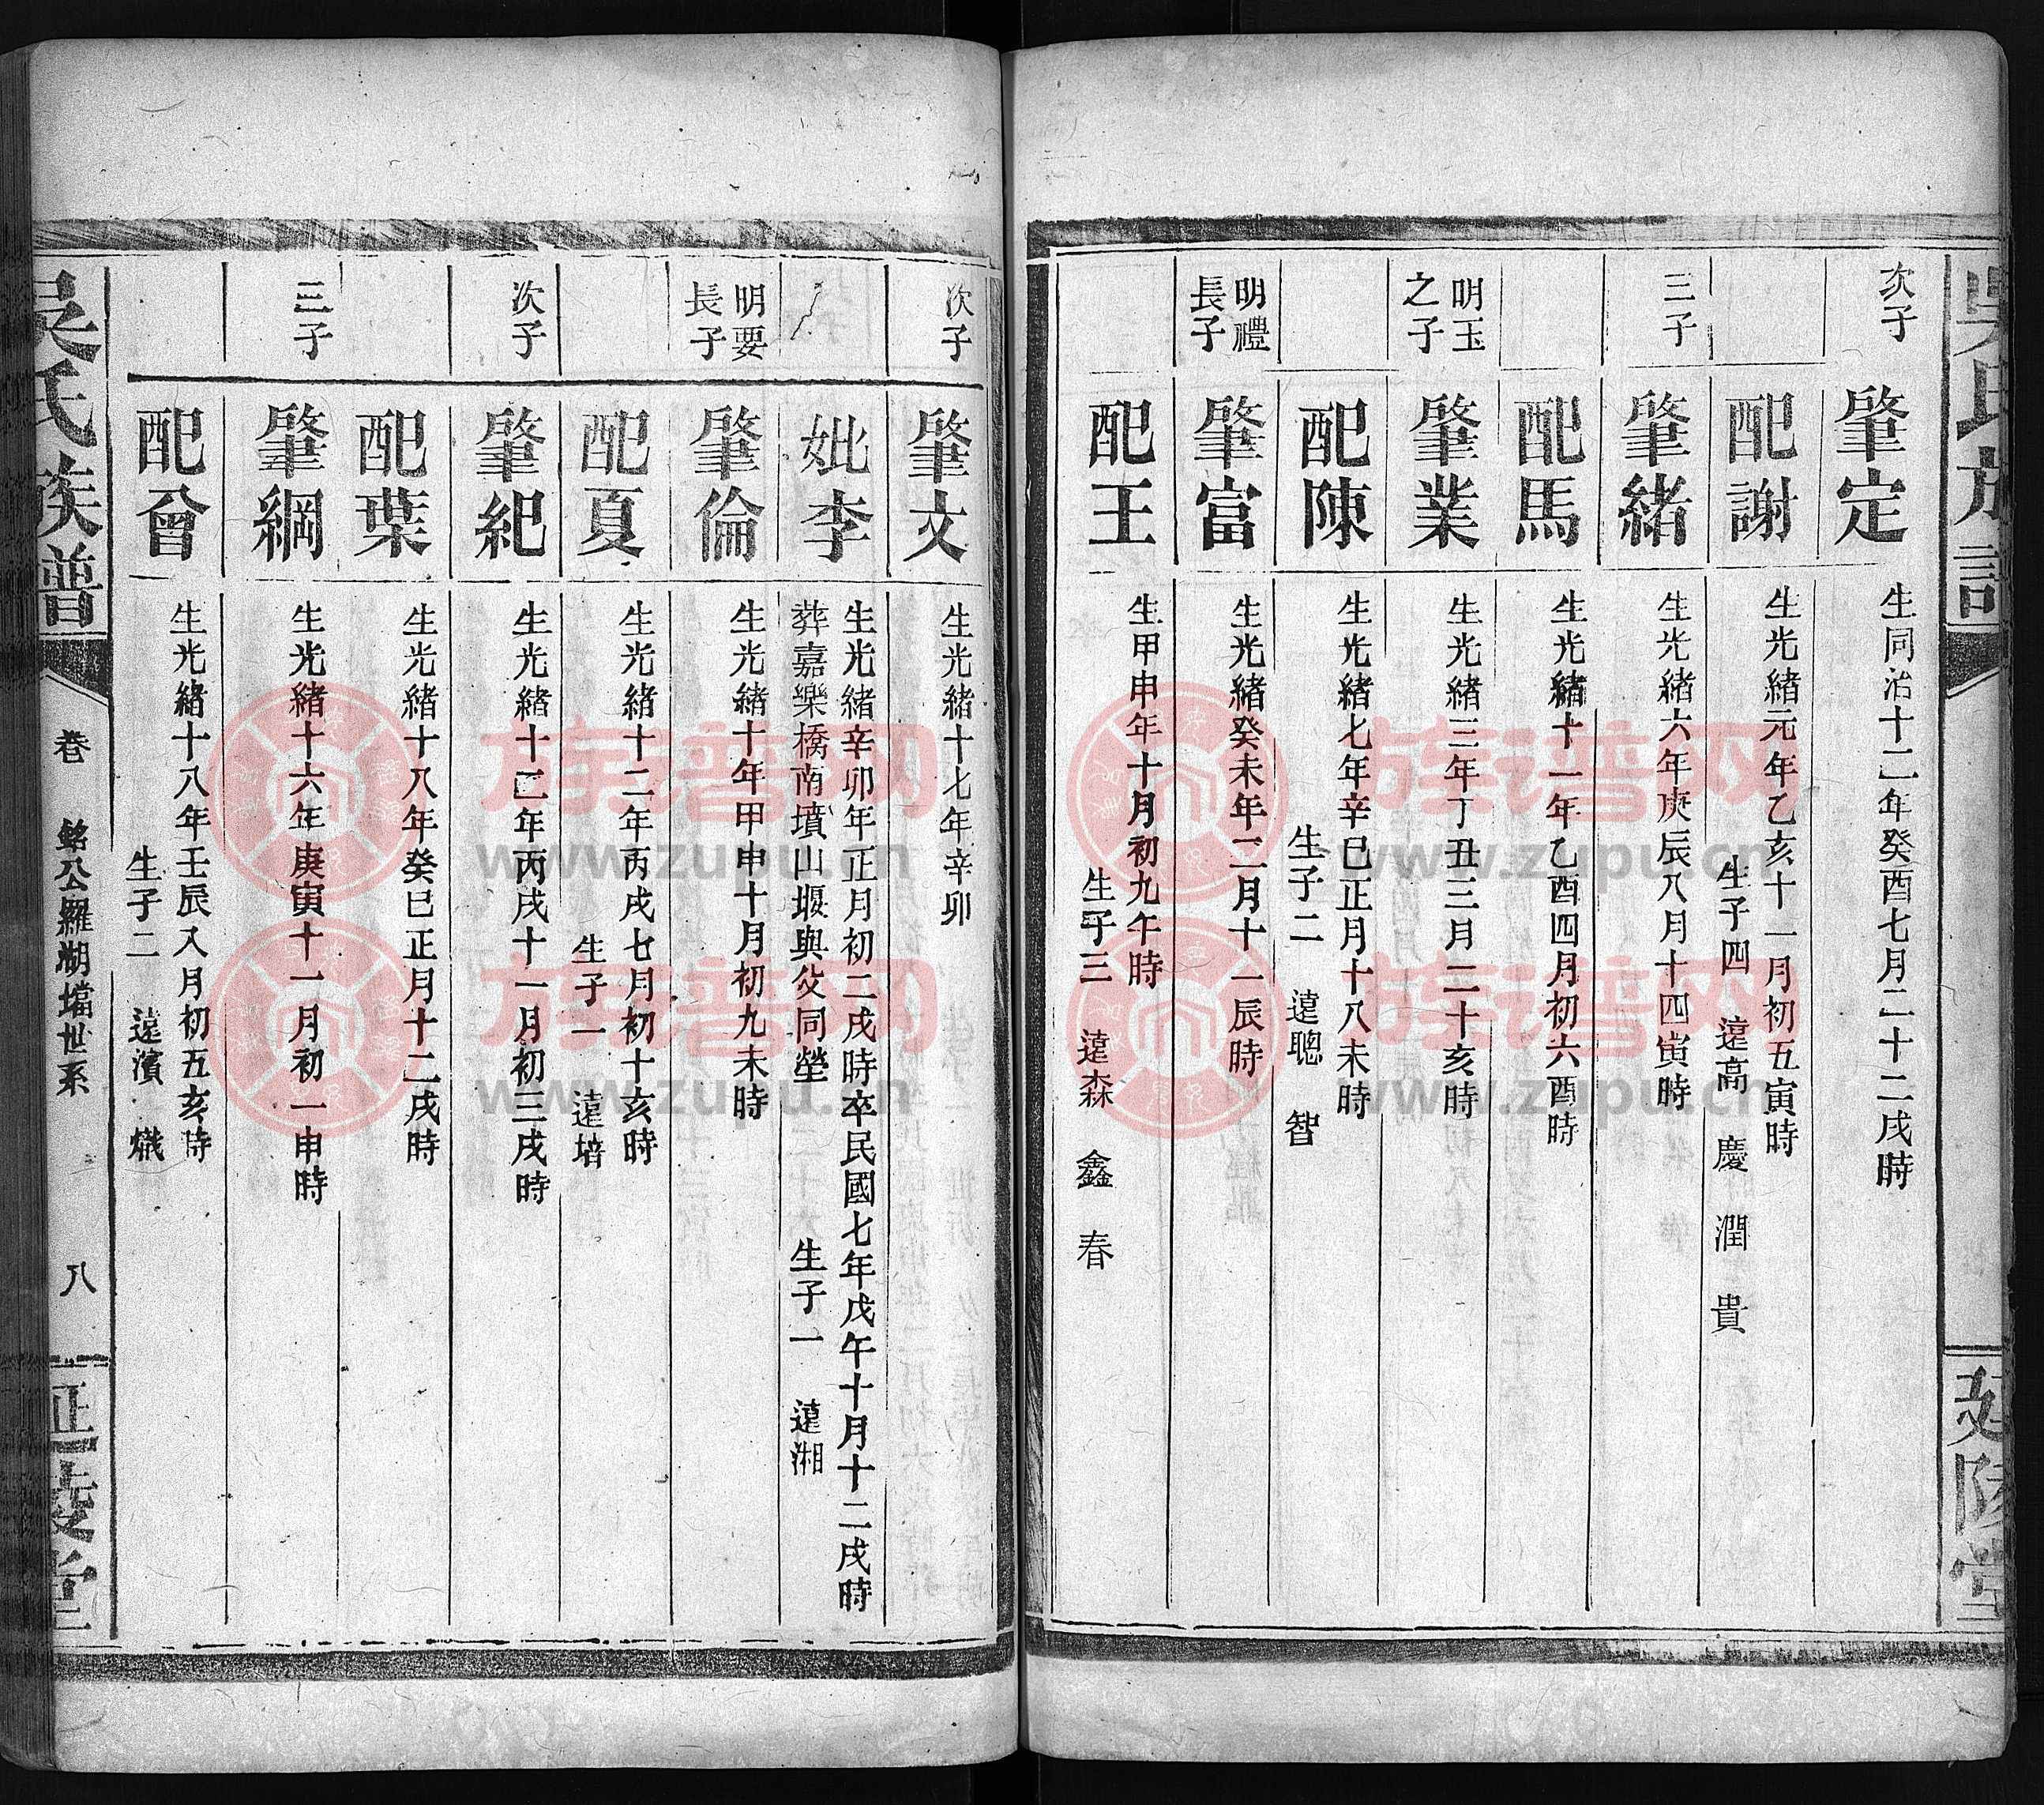 吳氏族譜
延陵堂
次子
肇定
生同治十二年癸酉七月二十二戌時
配謝
生光緒元年乙亥十一月初五寅時
生子四 遠高 慶 潤 貴
三子
肇緒
生光緒六年庚辰八月十四寅時
配馬
生光緒十一年乙酉四月初六酉時
明玉
之子
肇業
生光緒三年丁丑三月二十亥時
配陳
生光緒七年辛巳正月十八未時
生子二 遠聰 智
明禮
長子
肇富
生光緒癸未年二月十一辰時
配王
生甲申年十月初九午時
生子三 遠森 鑫 春
次子
肇文
生光緒十七年辛卯
妣李
生光緒辛卯年正月初二戌時卒民國七年戊午十月十二戌時
葬嘉樂橋南墳山堰與父同塋 生子一 遠湘
明要
長子
肇倫
生光緒十年甲申十月初九未時
配夏
生光緒十二年丙戌七月初十亥時
生子一 遠培
次子
肇紀
生光緒十二年丙戌十一月初三戌時
配葉
生光緒十八年癸巳正月十二戌時
三子
肇綱
生光緒十六年庚寅十一月初一申時
配曾
生光緒十八年壬辰八月初五亥時
生子二 遠濱 熾
吳氏族譜
卷 銘公羅湖壋世系 八
延陵堂
族谱网
www.zupu.cn
族谱网
www.zupu.cn
族谱网
www.zupu.cn
族谱网
www.zupu.cn